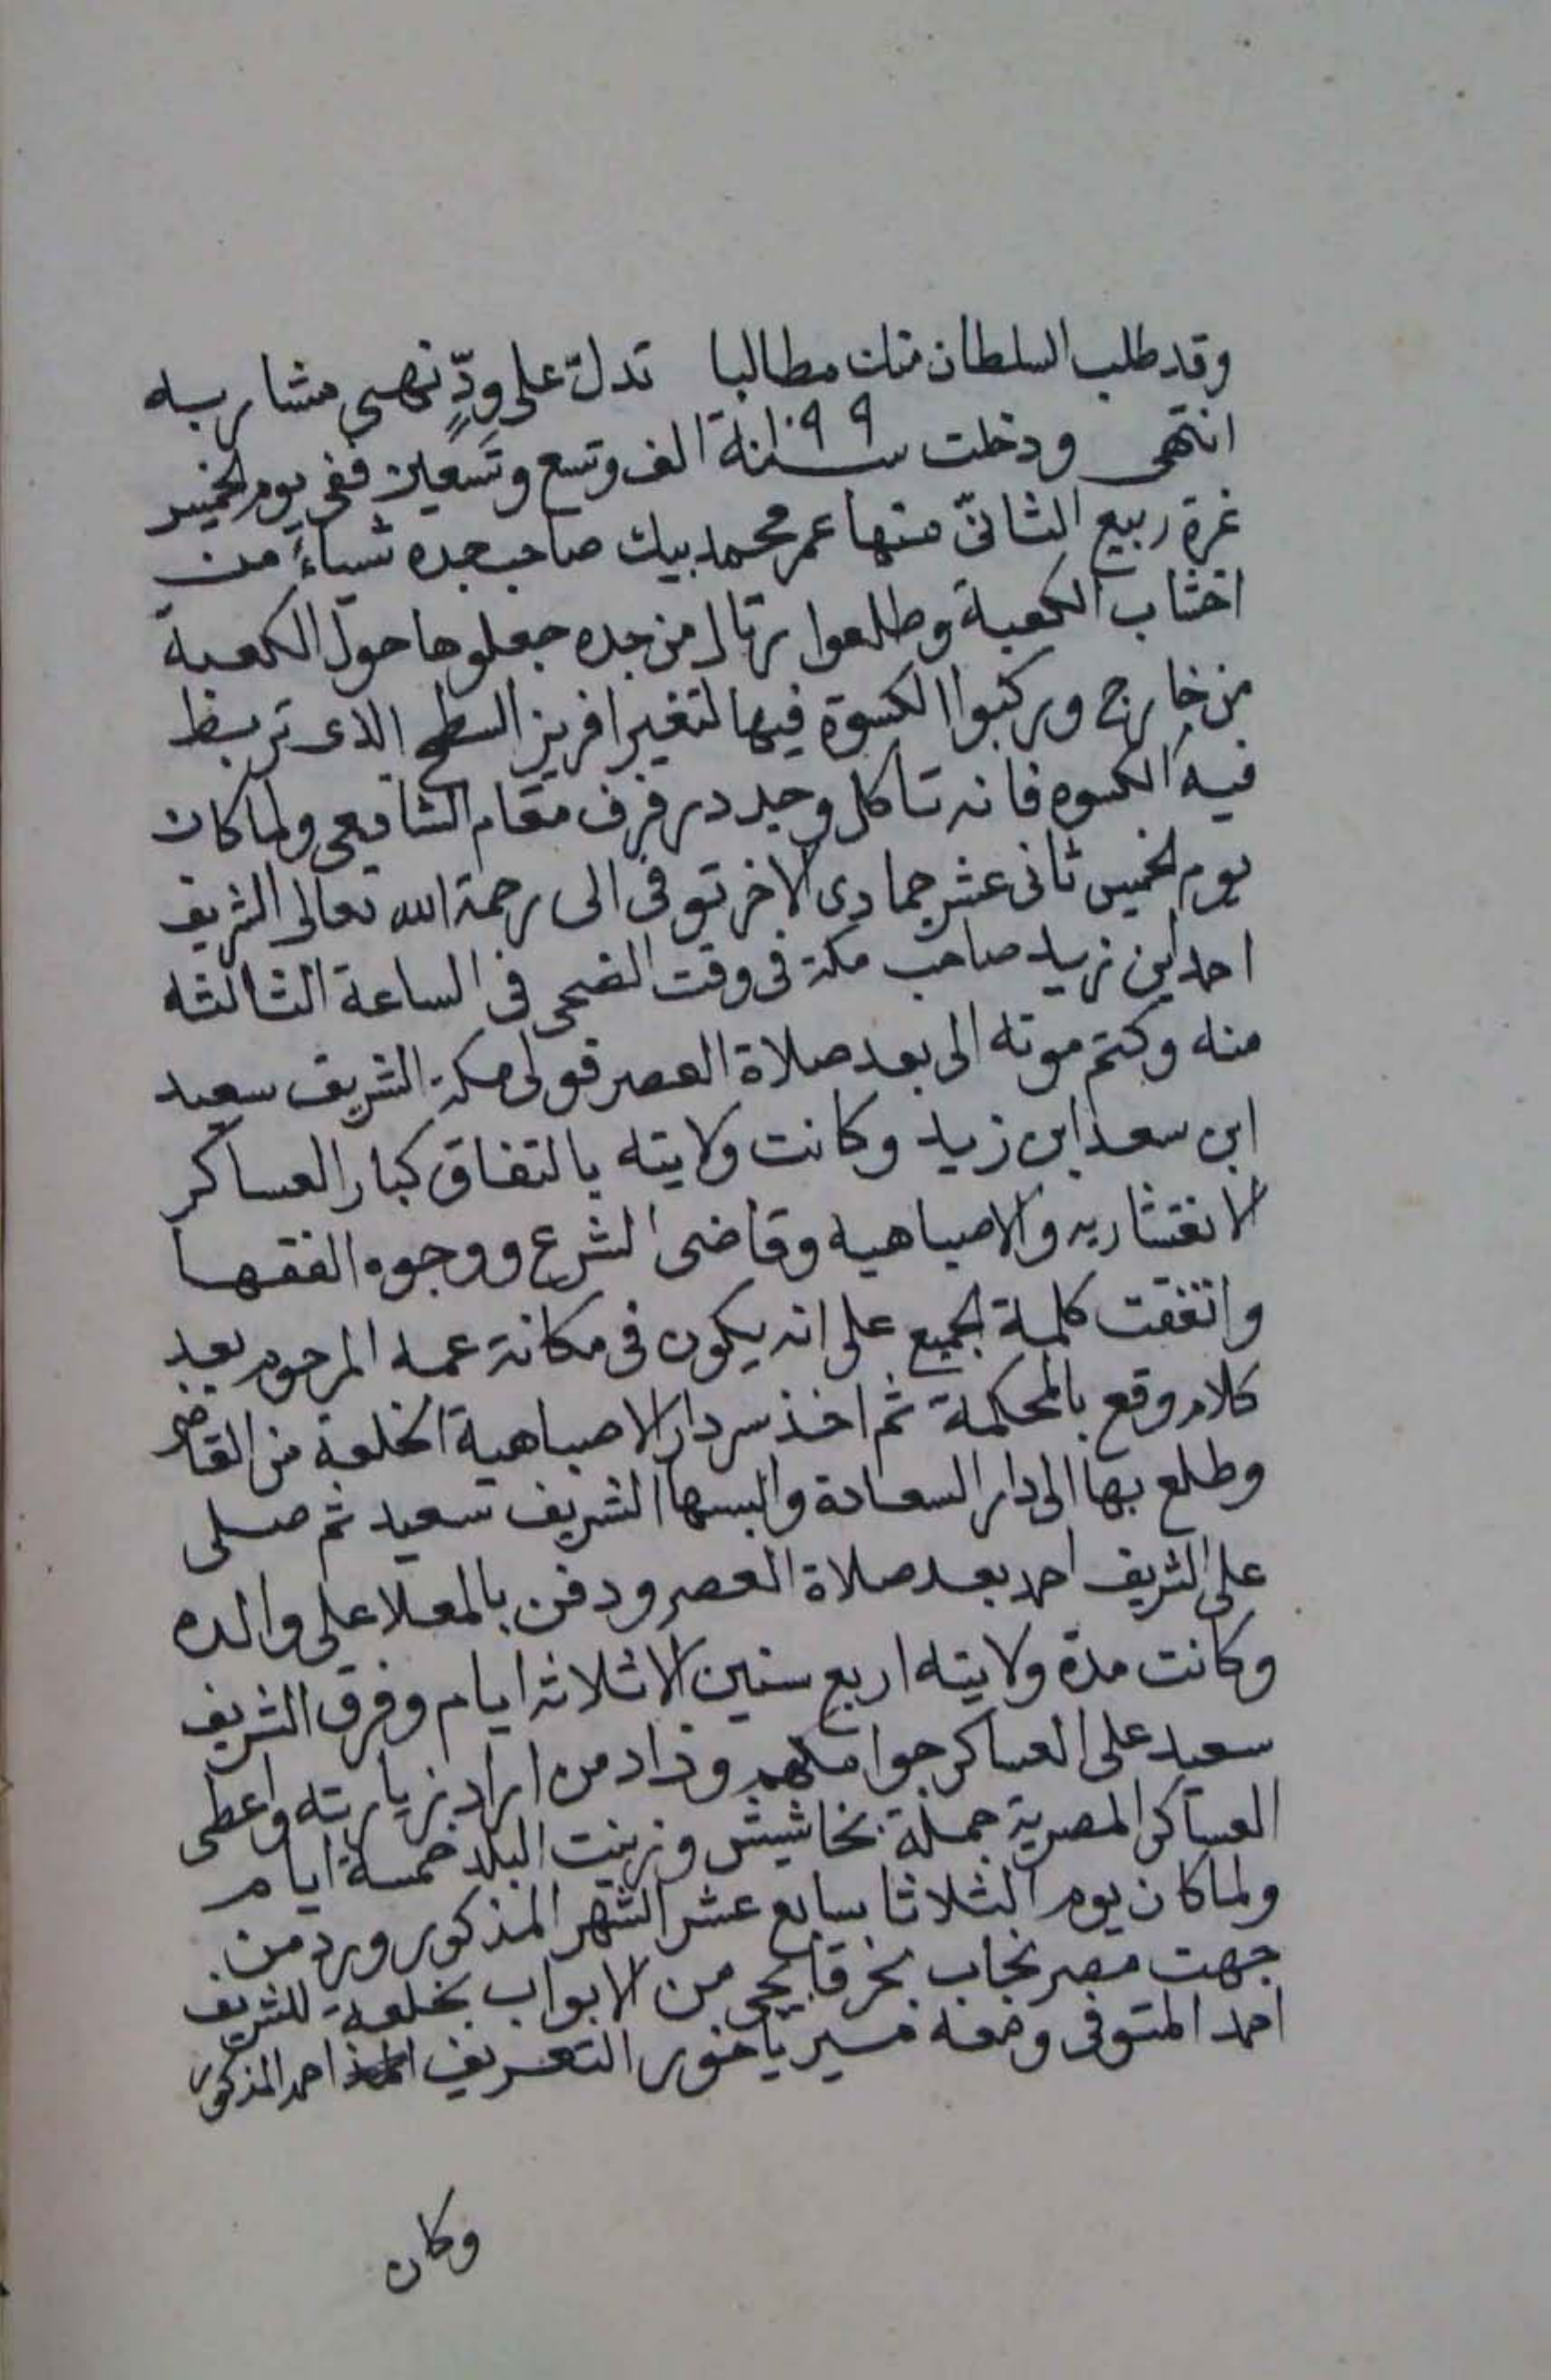 وقد طلب السلطان منك مطالبا تدلّ على ودٍّ نهى مشاربه
انتهى ودخلت سنة ١٠٩٩ الف وتسع وتسعين ففي يوم الخميس
غرة ربيع الثانيّ منها عمر محمد بيك صاحب جده شياءً من
اخشاب الكعبة وطلعوا برتال من جده جعلوها حول الكعبة
من خارج وركبوا الكسوة فيها لتغير افريز السطح الذى تربط
فيه الكسوه فانه تاكل وجدد رفرف مقام الشافعي ولما كان
يوم الخميس ثانى عشر جمادى الاخر توفى الى رحمة الله تعالى الشريف
احمد ابن زيد صاحب مكة فى وقت الضحى فى الساعة الثالثه
منه وكتم موته الى بعد صلاة العصر فولى مكة الشريف سعيد
ابن سعد ابن زيد وكانت ولايته بالتفاق كبار العساكر
الانقشاريه والاصباهيه وقاضى الشرع ووجوه الفقها
واتفقت كلمة الجميع على انه يكون فى مكانة عمه المرحوم بعد
كلام وقع بالمحكمة ثم اخذ سردار الاصباهية الخلعة من القاضى
وطلع بها الى دار السعادة والبسها الشريف سعيد ثم صلى
على الشريف احمد بعد صلاة العصر ودفن بالمعلا على والده
وكانت مدة ولايته اربع سنين الا ثلاثة ايام وفرق الشريف
سعيد على العساكر جوامكهم وزاد من اراد زيارته واعطى
العساكر المصرية جملة بخاشيش وزينت البلد خمسة ايام
ولما كان يوم الثلاثا سابع عشر الشهر المذكور ورد من
جهت مصر نجاب بخبر قابجى من الابواب بخلعة للشريف
احمد المتوفى وضعه التعريف احمد المذكور
وكان